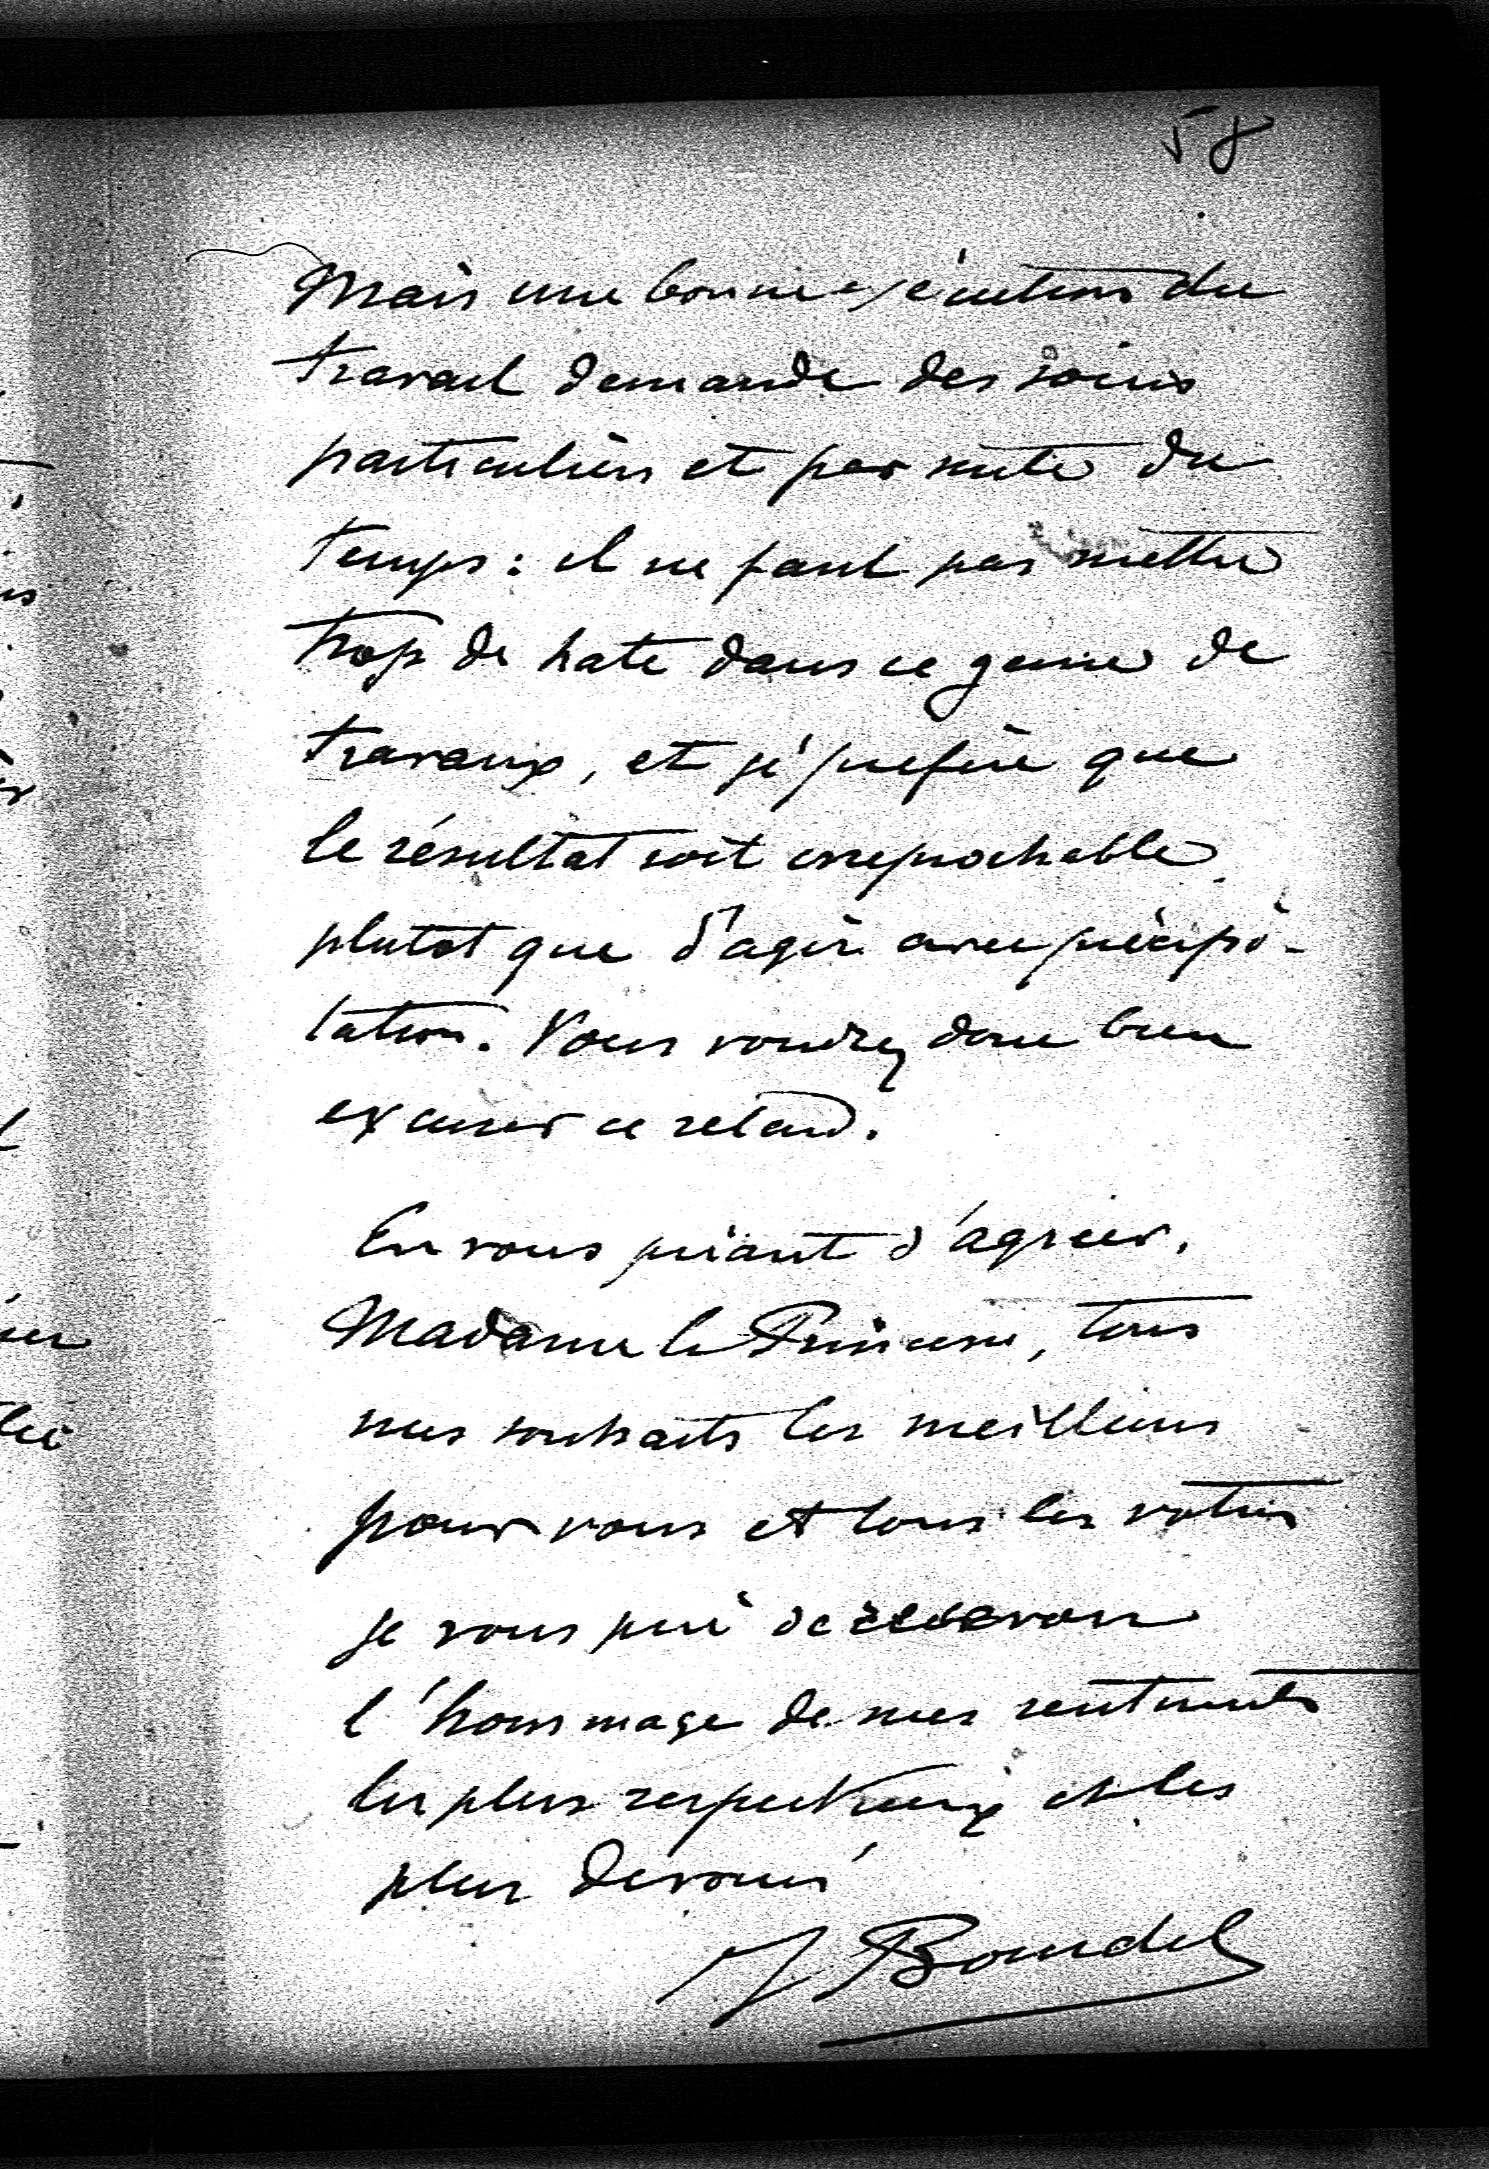 58
Mais une bonne exécution du
travail demande des soins
particuliers et par suite du
temps : il ne faut pas mettre
trop de hate dans ce genre de
travaux, et je préfère que
le résultat soit irreprochable
plutot que d'agir avec précipi-
tation. Vous voudrez donc bien
excuser ce retard.
En vous priant d'agréer,
Madame la Princesse, tous
mes souhaits les meilleurs
pour vous et tous les votres
je vous prie de recevoir
l'hommage de mes sentiments
les plus respectueux et les
plus devoués
J Bourdel